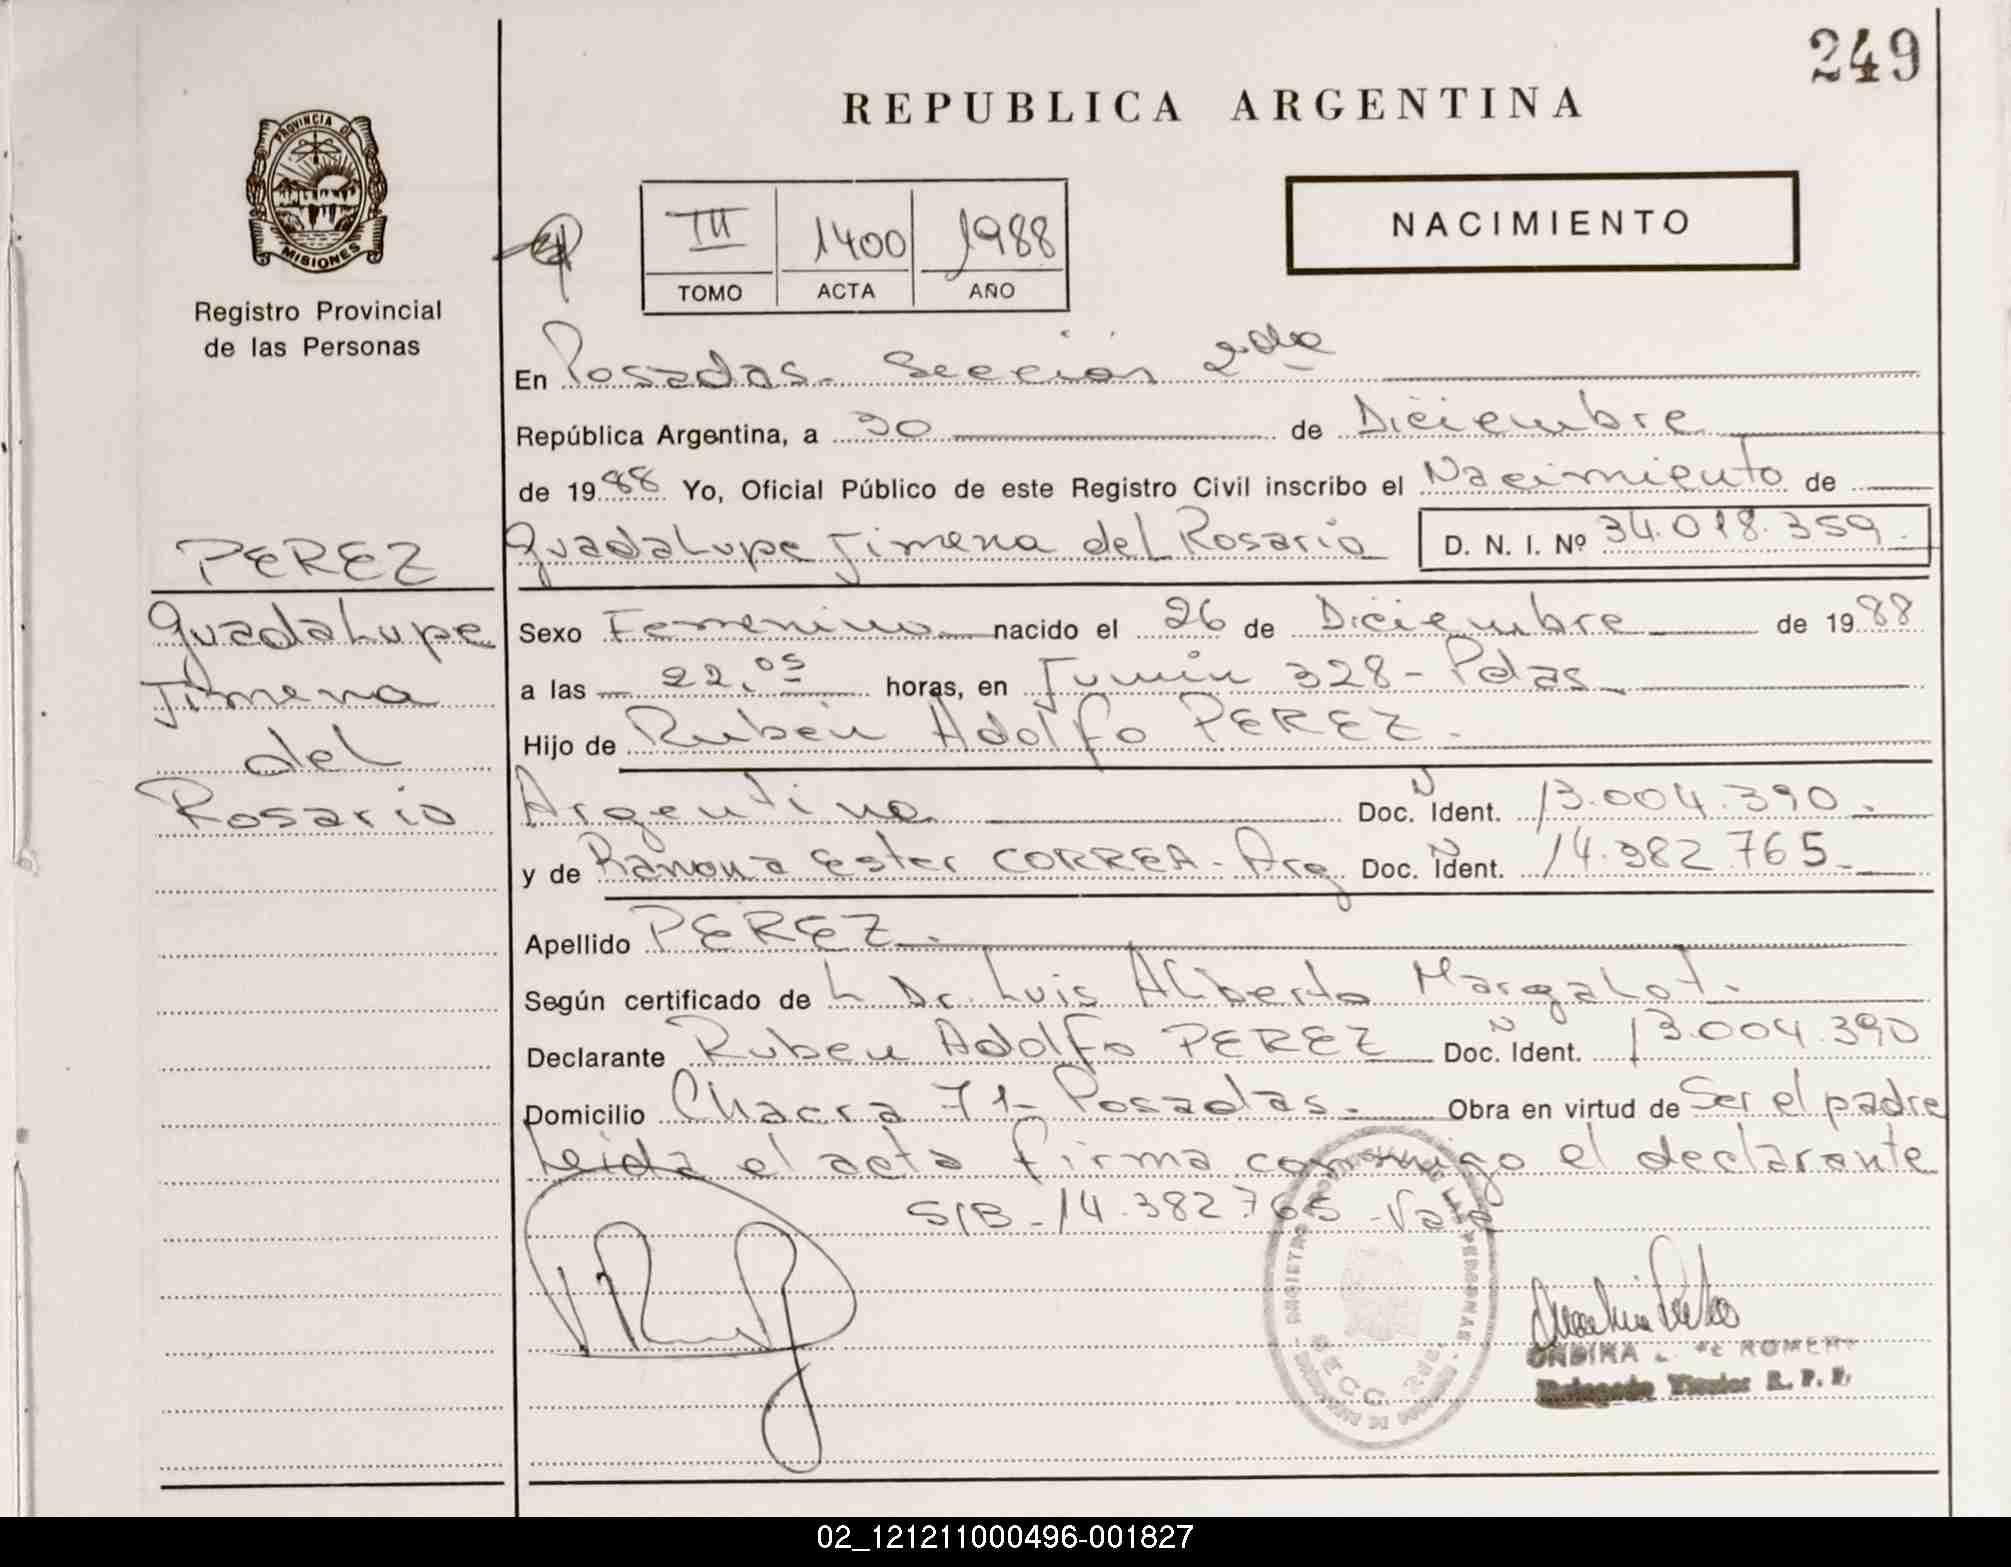 249
REPUBLICA ARGENTINA
PROVINCIA DE
MISIONES
Registro Provincial
de las Personas
III 1400 1988
TOMO ACTA AÑO
NACIMIENTO
En Posadas - Sección 2da
República Argentina, a 30 de Diciembre
de 1988 Yo, Oficial Público de este Registro Civil inscribo el Nacimiento de
Guadalupe Jimena del Rosario D. N. I. Nº 34.018.359.
PEREZ
Guadalupe
Jimena
del
Rosario
Sexo Femenino nacido el 26 de Diciembre de 1988
a las 22,05 horas, en Junín 328 - Pdas
Hijo de Rubén Adolfo PEREZ.
Argentino Doc. Ident. N 13.004.390.
y de Ramona Ester CORREA - Arg Doc. Ident. N 14.382.765
Apellido PEREZ.
Según certificado de L Dr. Luis Alberto Margalot.
Declarante Ruben Adolfo PEREZ Doc. Ident. N 13.004.390
Domicilio Chacra 71 - Posadas. Obra en virtud de Ser el padre
Leida el acta firma conmigo el declarante
S/B - 14.382.765 - Vale
SECC. 2da.
ROMERO
Titular R. P. P.
02_121211000496-001827